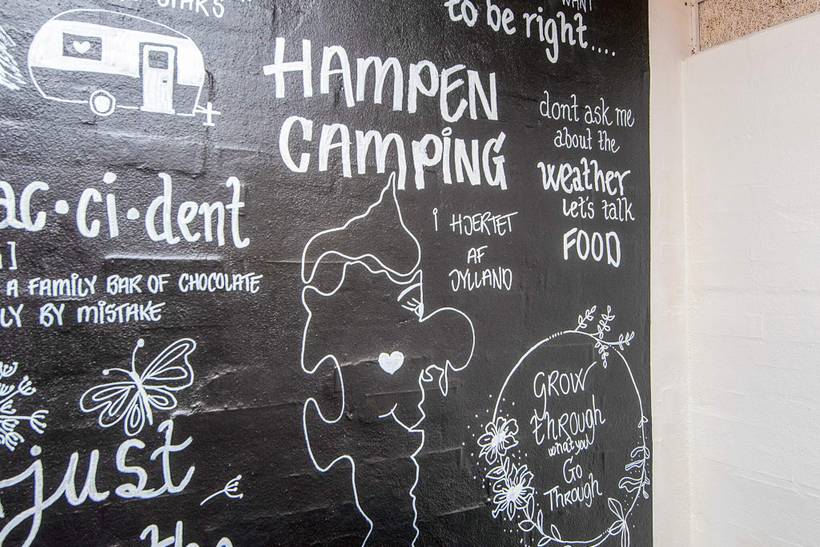 STARS
WANT
to be right....
HAMPEN
CAMPING
dont ask me
about the
weather
let's talk
FOOD
I HJERTET
AF
JYLLAND
ac·ci·dent
]
A FAMILY BAR OF CHOCOLATE
LY BY MISTAKE
just
the
GROW
through
what you
Go
Through